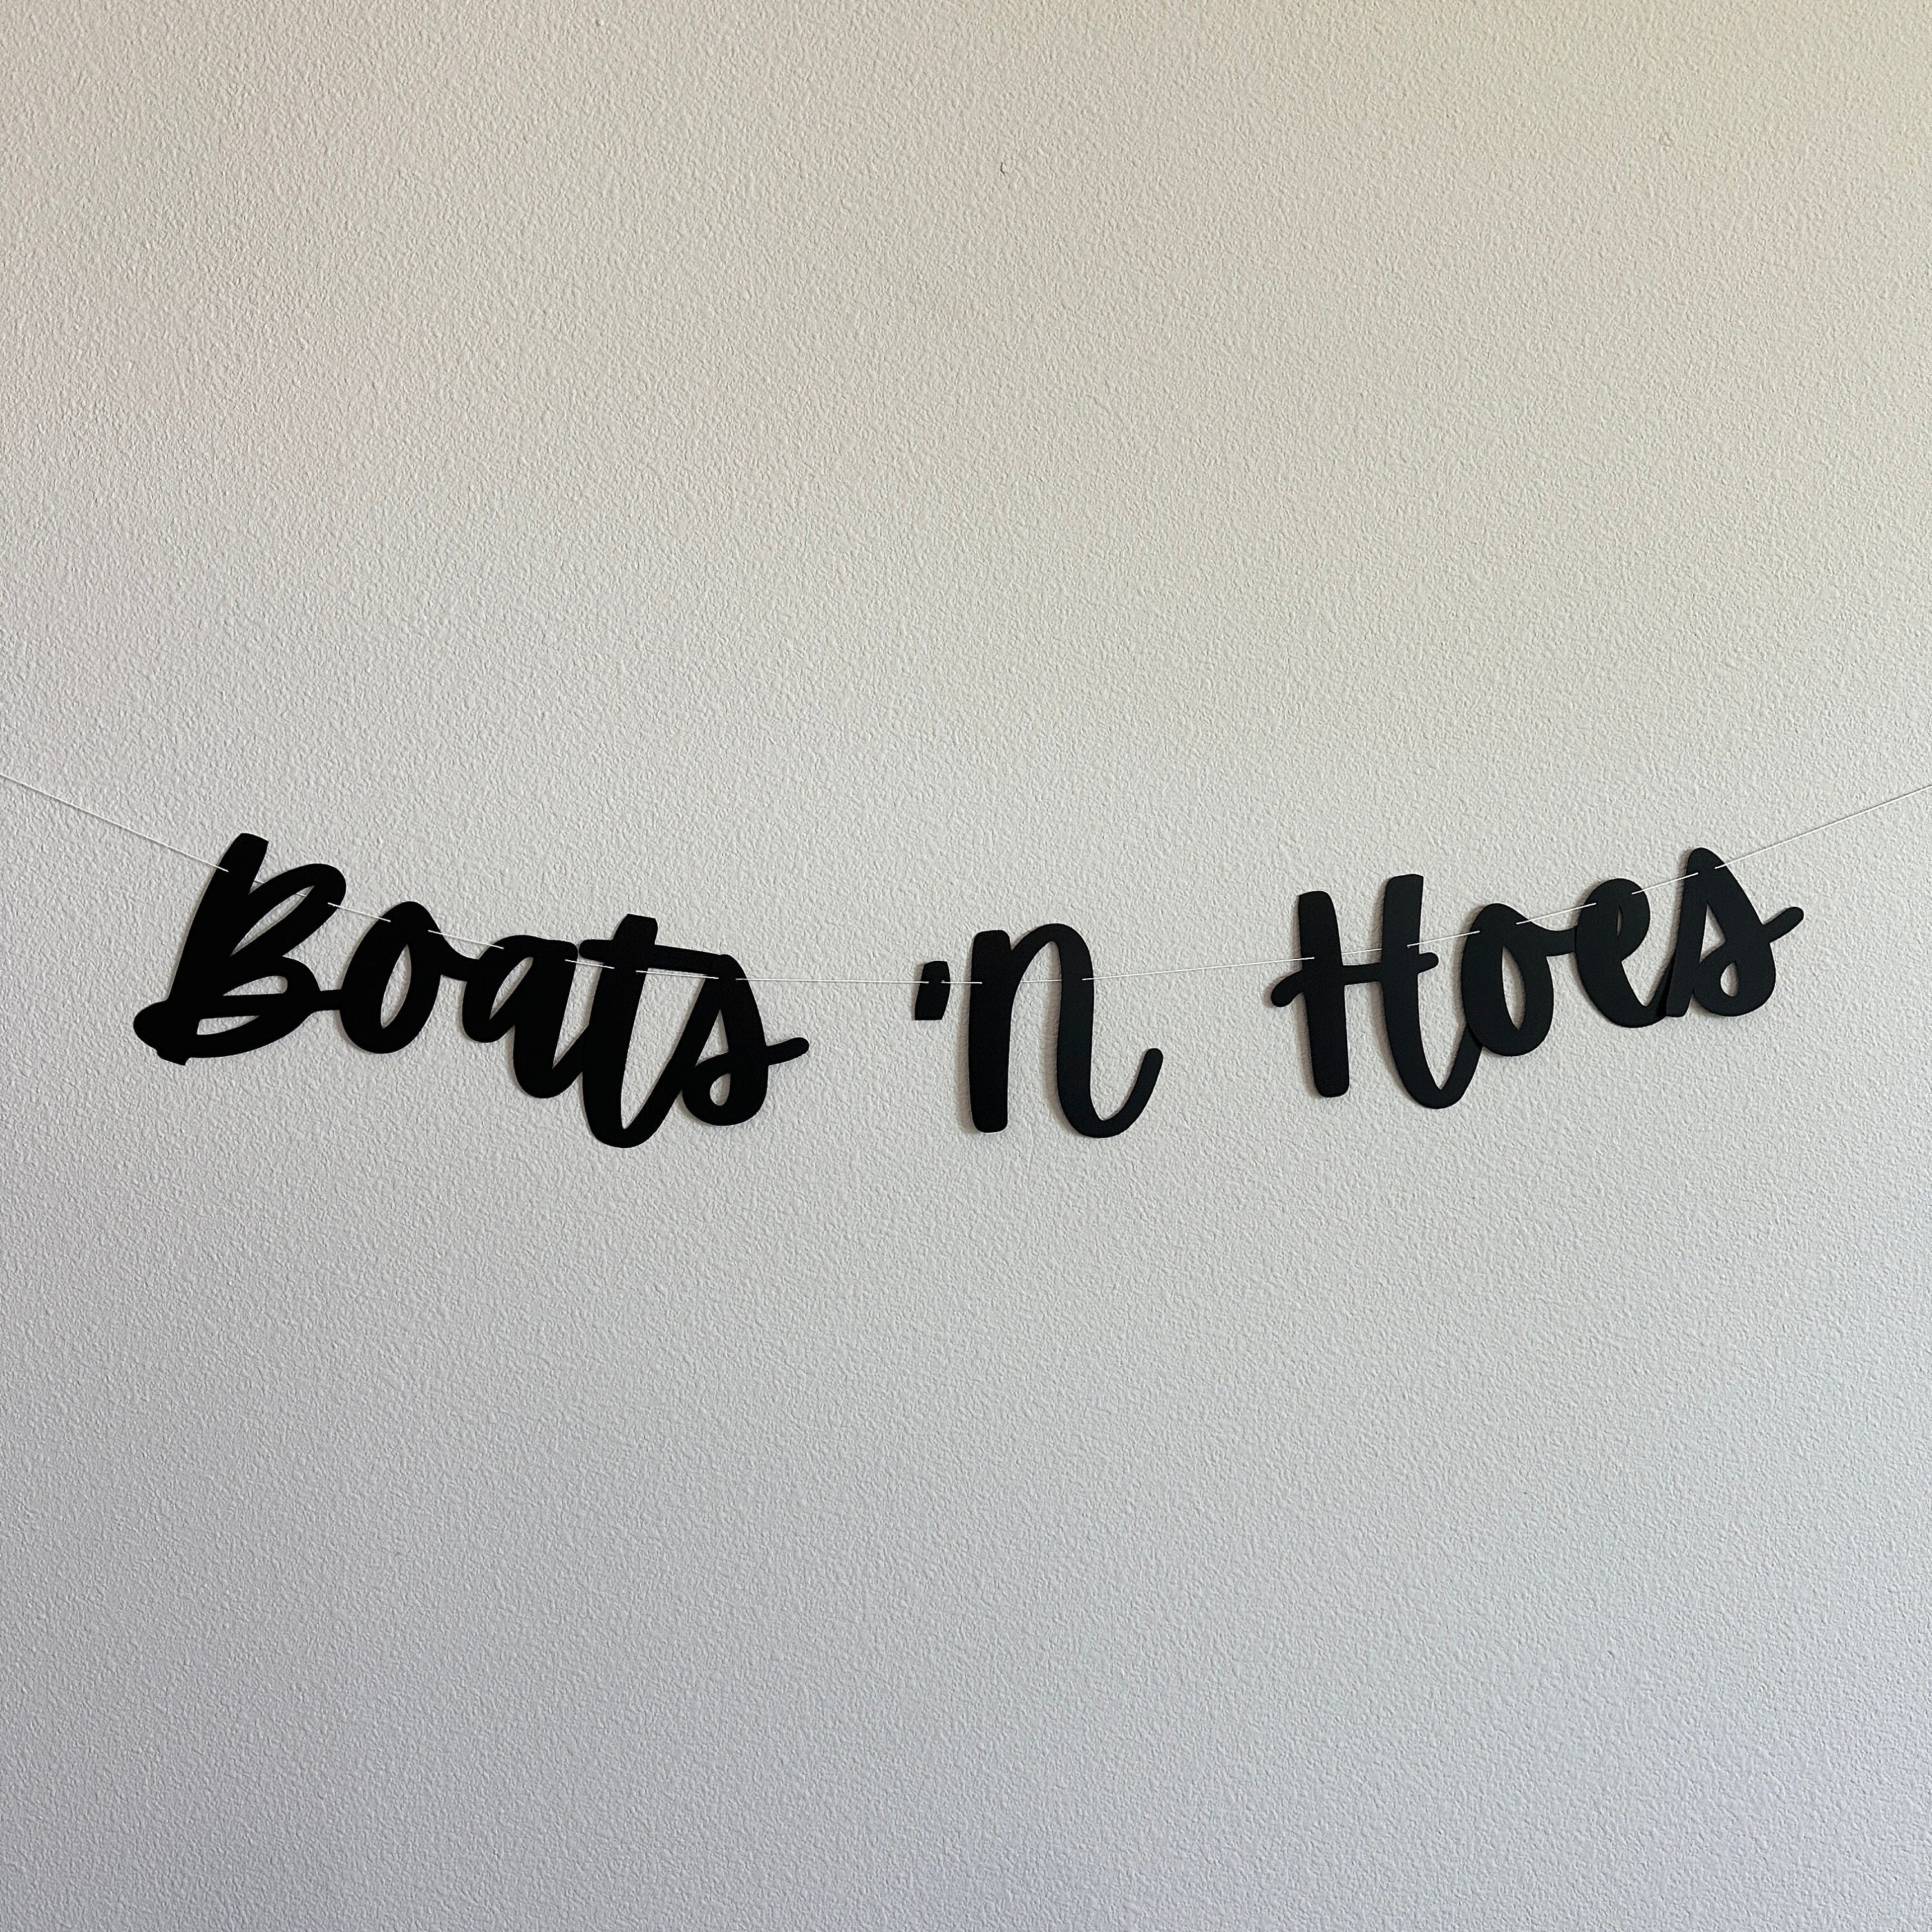 Boats 'n Hoes